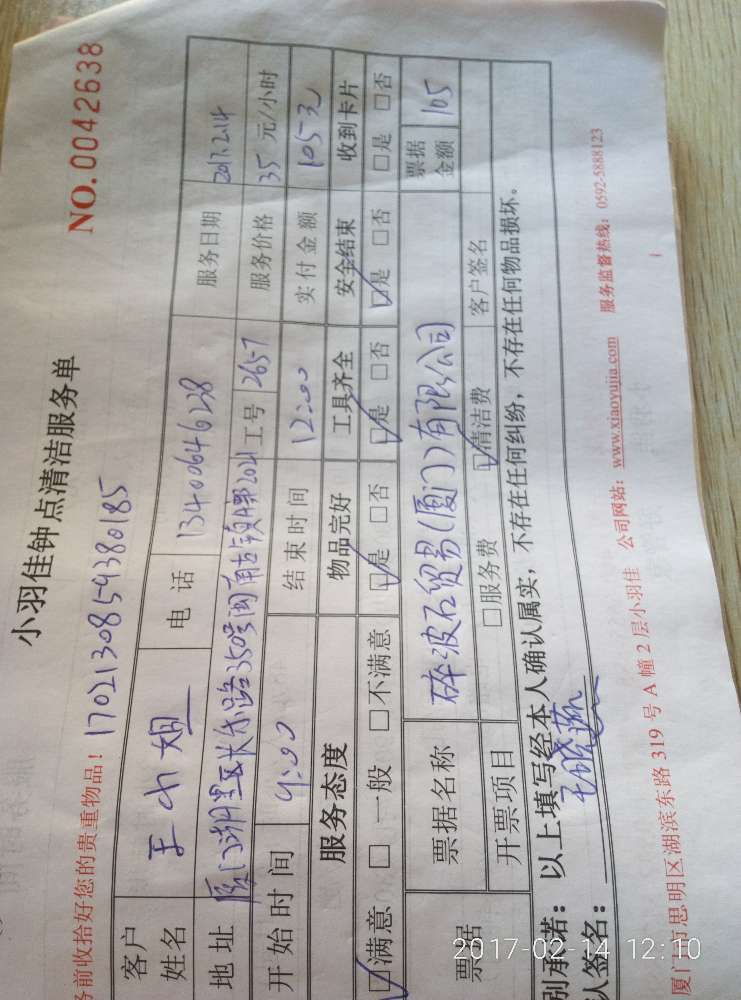 小羽佳钟点清洁服务单
NO.0042638
务前收拾好您的贵重物品! 17021308594380185
客户姓名 王小姐 电话 13400646228 服务日期 2017.2.14
地址 厦门湖里区长乐路350号闽南古镇 2021 工号 2657 服务价格 35 元/小时
开始时间 9:00 结束时间 12:00 实付金额 105元
服务态度 物品完好 工具齐全 安全结束 收到卡片
☑满意 □一般 □不满意 ☑是 □否 ☑是 □否 ☑是 □否 □是 □否
票据 票据名称 碎波石贸易(厦门)有限公司 票据金额 105
开票项目 □服务费 ☑清洁费 客户签名
别承诺: 以上填写经本人确认属实,不存在任何纠纷,不存在任何物品损坏。
人签名:
厦门市思明区湖滨东路 319 号 A 幢 2 层小羽佳 公司网站: www.xiaoyujia.com 服务监督热线: 0592-5888123
2017-02-14 12:10